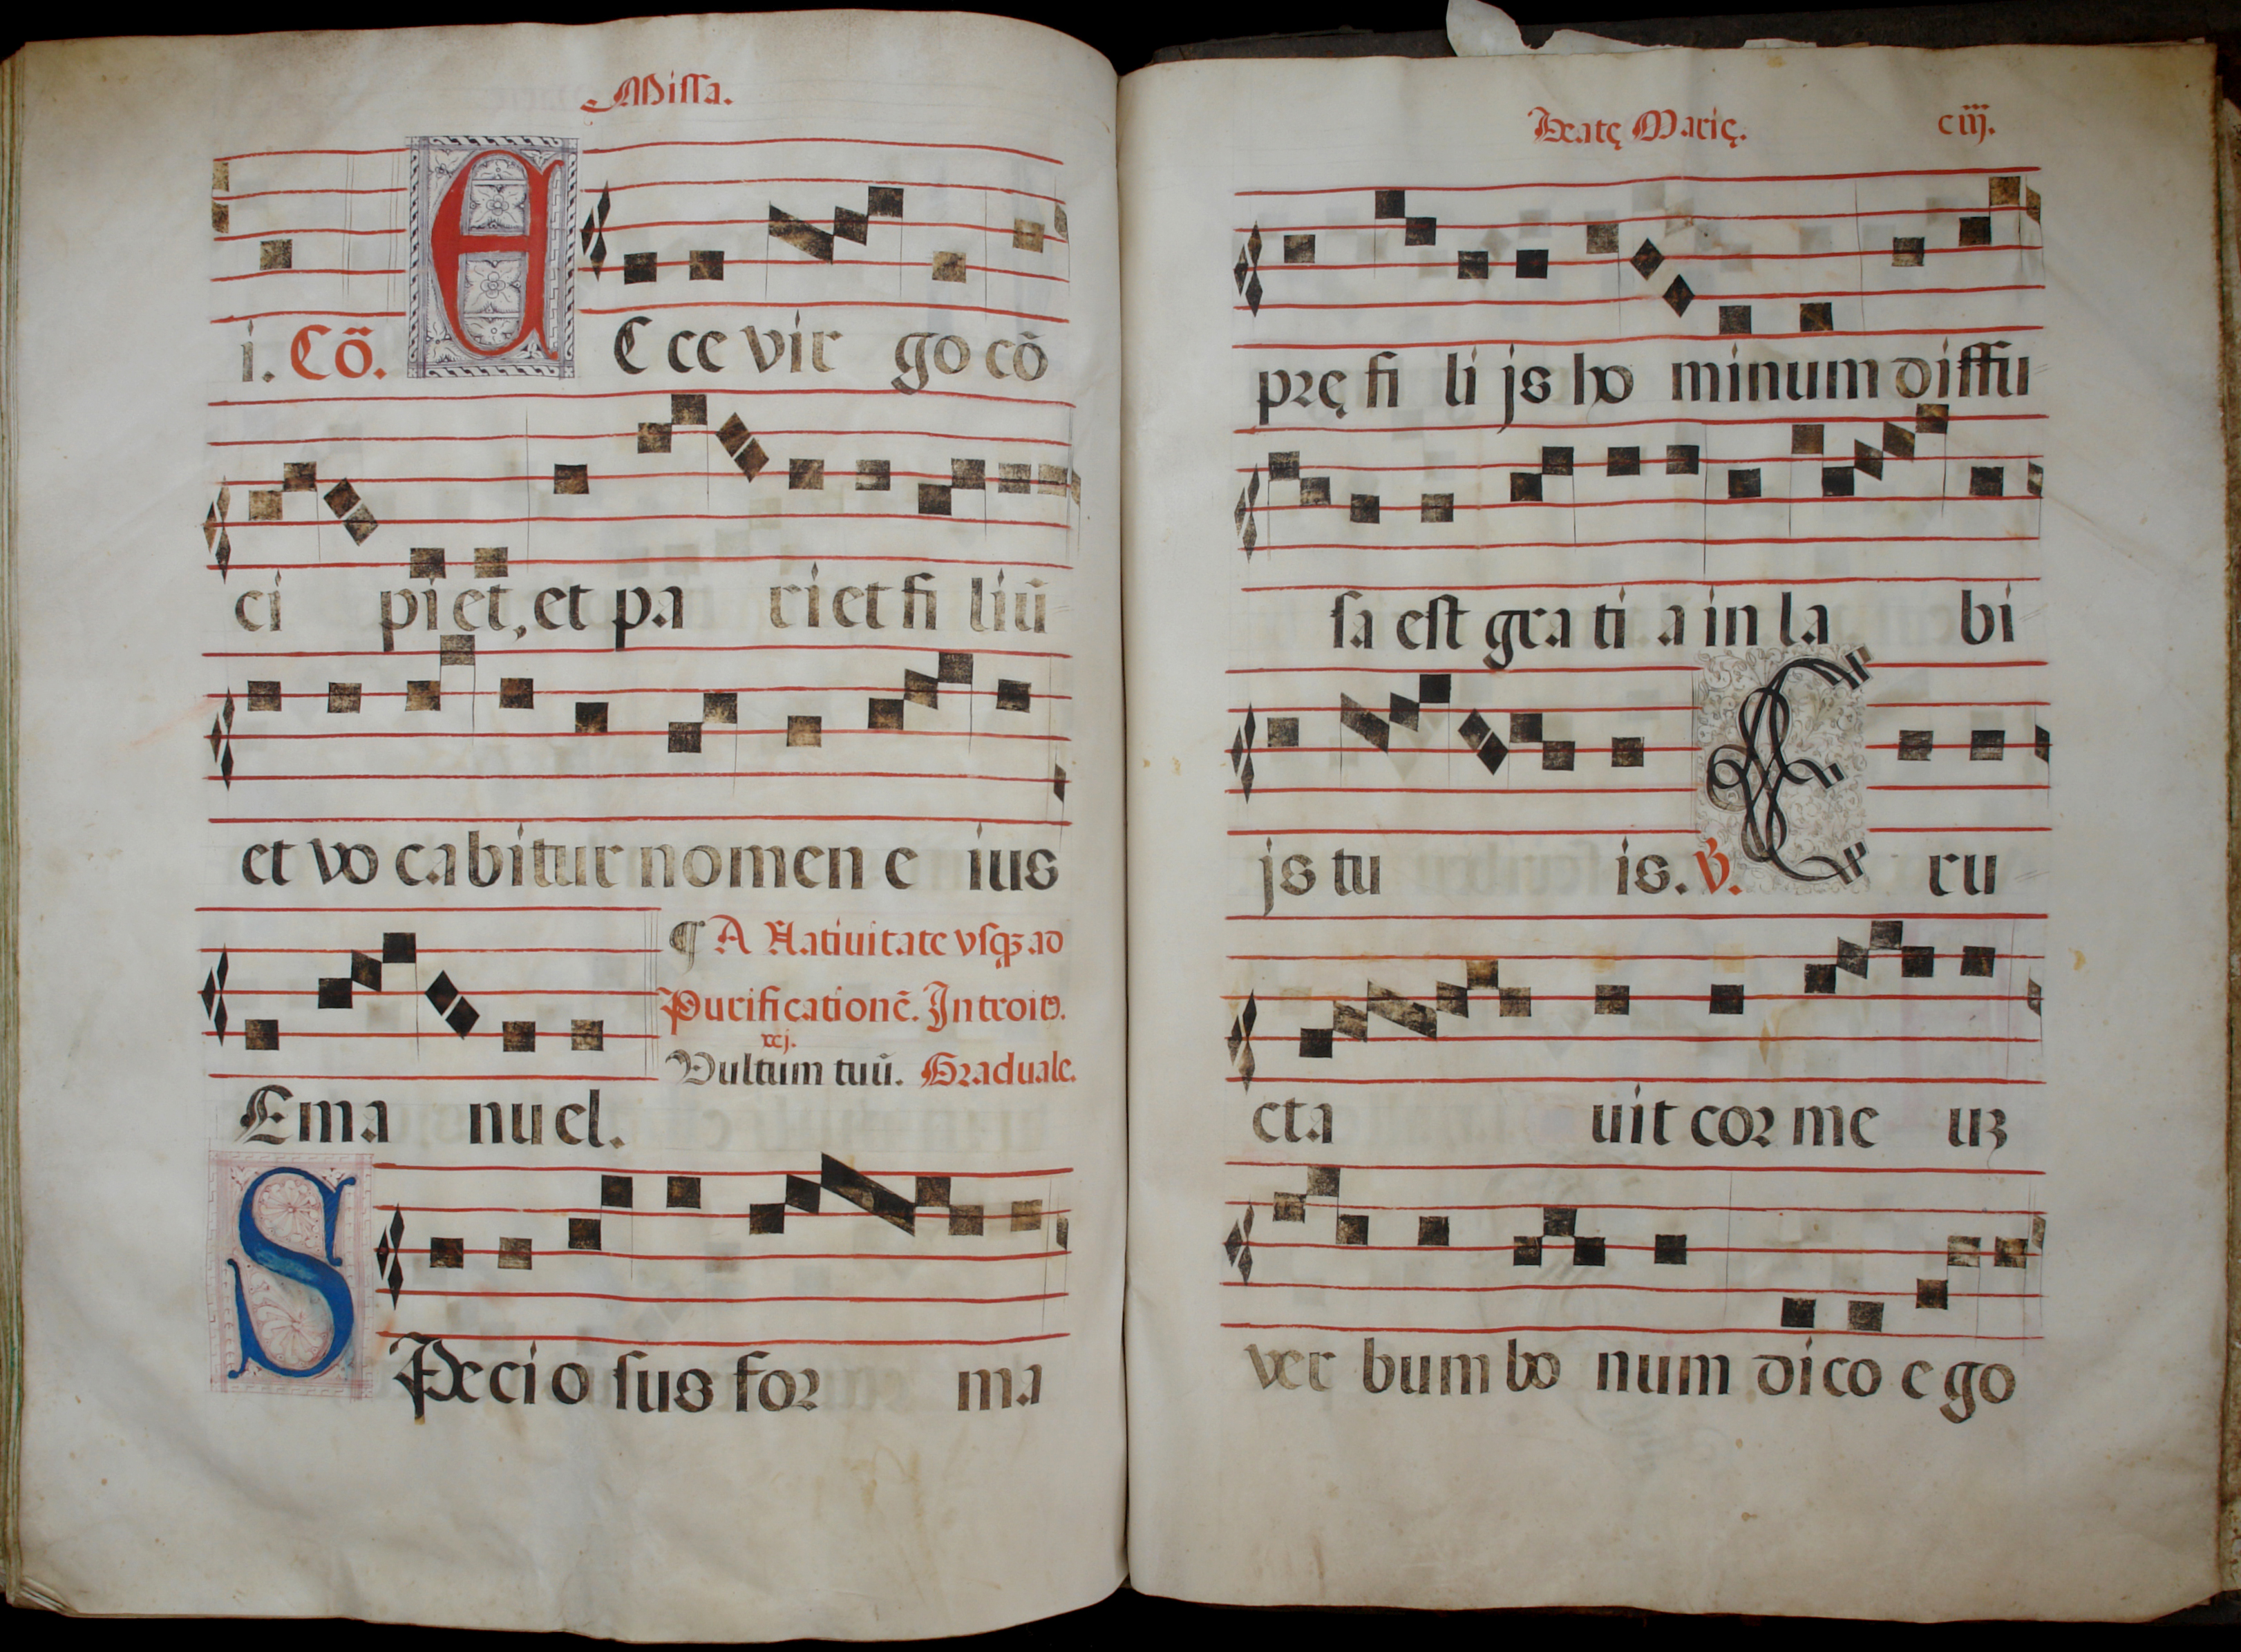 Missa.
i. Cõ. E C ce vir go cõ
ci pi et, et pa ri et fi liũ
et vo ca bi tur no men e ius
¶ A Natiuitate vsqꝫ ad
Purificationẽ. Introitꝰ.
xcj.
Vultum tuũ. Graduale.
Ema nu el.
S Pe ci o ſus foꝛ ma
Beatę Marię. ciij.
pꝛę fi li js ho minum diffu
ſa eſt gra ti a in la bi
js tu is. ℣. E ru
cta uit coꝛ me uꝫ
ver bum bo num di co e go